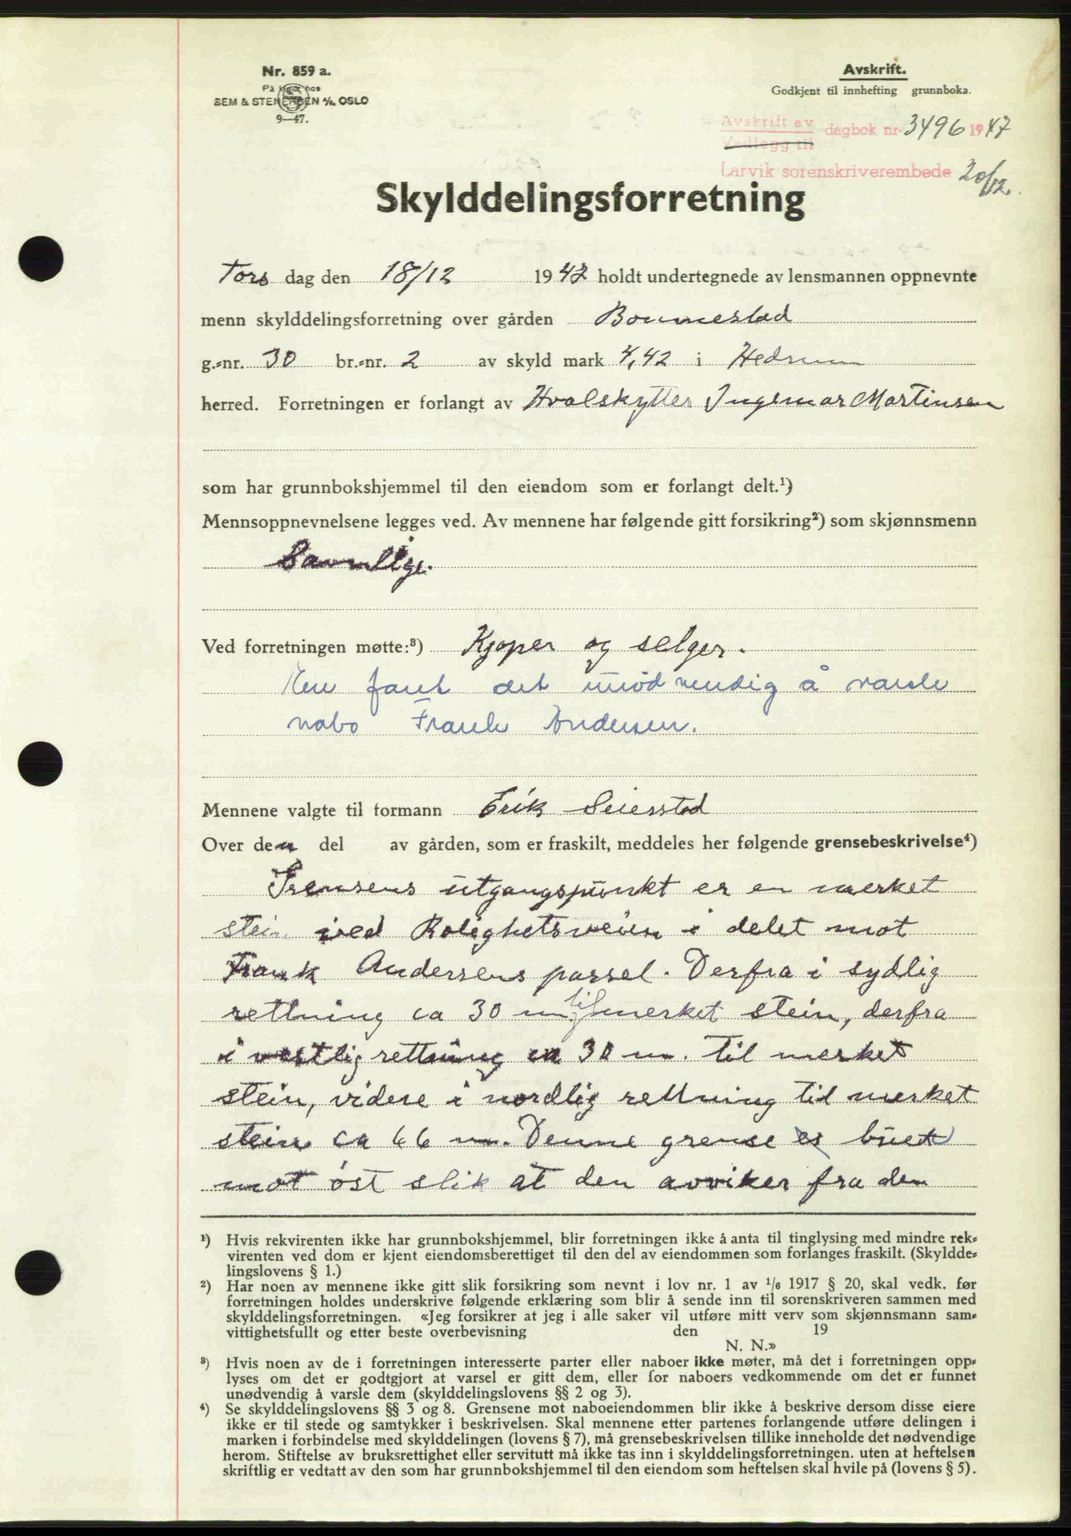 Nr. 859 a.
På lager hos
SEM & STENERSEN A/S, OSLO
9—47.
Avskrift.
Godkjent til innhefting grunnboka.
Avskrift av dagbok nr 3496 1947
Vedlegg til
Larvik sorenskriverembede 20/12.
Skylddelingsforretning
Tors dag den 18/12 1947 holdt undertegnede av lensmannen oppnevnte
menn skylddelingsforretning over gården Bommestad
g.-nr. 30 br.-nr. 2 av skyld mark 4,42 i Hedrum
herred. Forretningen er forlangt av Hvalskytter Ingemar Martinsen
som har grunnbokshjemmel til den eiendom som er forlangt delt.¹)
Mennsoppnevnelsene legges ved. Av mennene har følgende gitt forsikring²) som skjønnsmenn
Samtlige.
Ved forretningen møtte:³) Kjøper og selger.
fant det unødvendig å varsle
nabo Frank Andersen.
Mennene valgte til formann Erik Seierstad
Over den del av gården, som er fraskilt, meddeles her følgende grensebeskrivelse⁴)
Grensens utgangspunkt er en merket
stein ved Rolighetsveien i delet mot
Frank Andersens parsel. Derfra i sydlig
rettning ca 30 m til merket stein, derfra
i vestlig rettning ca 30 m. til merket
stein, videre i nordlig rettning til merket
stein ca 66 m. Denne grense er buet
mot øst slik at den avviker fra den
¹) Hvis rekvirenten ikke har grunnbokshjemmel, blir forretningen ikke å anta til tinglysing med mindre rek-
virenten ved dom er kjent eiendomsberettiget til den del av eiendommen som forlanges fraskilt. (Skyldde-
lingslovens § 1.)
²) Har noen av mennene ikke gitt slik forsikring som nevnt i lov nr. 1 av 1/6 1917 § 20, skal vedk. før
forretningen holdes underskrive følgende erklæring som blir å sende inn til sorenskriveren sammen med
skylddelingsforretningen. «Jeg forsikrer at jeg i alle saker vil utføre mitt verv som skjønnsmann sam-
vittighetsfullt og etter beste overbevisning den 19
N. N.»
³) Hvis noen av de i forretningen interesserte parter eller naboer ikke møter, må det i forretningen opp-
lyses om det er godtgjort at varsel er gitt dem, eller for naboers vedkommende om det er funnet
unødvendig å varsle dem (skylddelingslovens §§ 2 og 3).
⁴) Se skylddelingslovens §§ 3 og 8. Grensene mot naboeiendommen blir ikke å beskrive dersom disse eiere
ikke er til stede og samtykker i beskrivelsen. Skal mennene etter partenes forlangende utføre delingen i
marken i forbindelse med skylddelingen (lovens § 7), må grensebeskrivelsen tillike inneholde det nødvendige
herom. Stiftelse av bruksrettighet eller servitutt må ikke tas inn i skylddelingsforretningen. uten at heftelsen
skriftlig er vedtatt av den som har grunnbokshjemmel til den eiendom som heftelsen skal hvile på (lovens § 5).